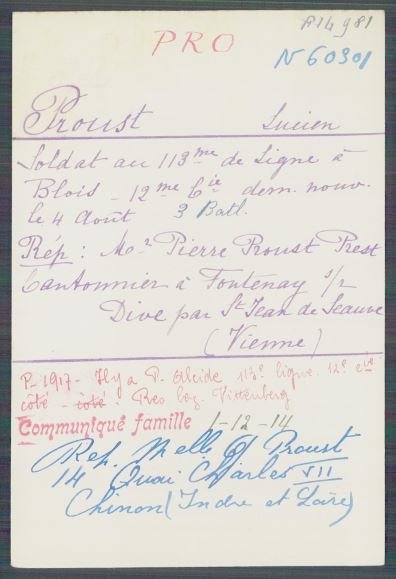 A 14981
PRO
N 60301
Proust Lucien
Soldat au 113me de Ligne à
Blois - 12me Cie dern. nouv.
le 4 Août 3 Batl.
Rép : Mr Pierre Proust Prest
Cantonnier à Fontenay s/
Dive par St Jean de Sauve
(Vienne)
P. 1917 - Il y a P. Alcide 113e ligne. 12e cie
côté - côté : Pres Wittenberg
Communiqué famille 1-12-14
Rep. Melle G Proust
14 Quai Charles VII
Chinon (Indre et Loire)